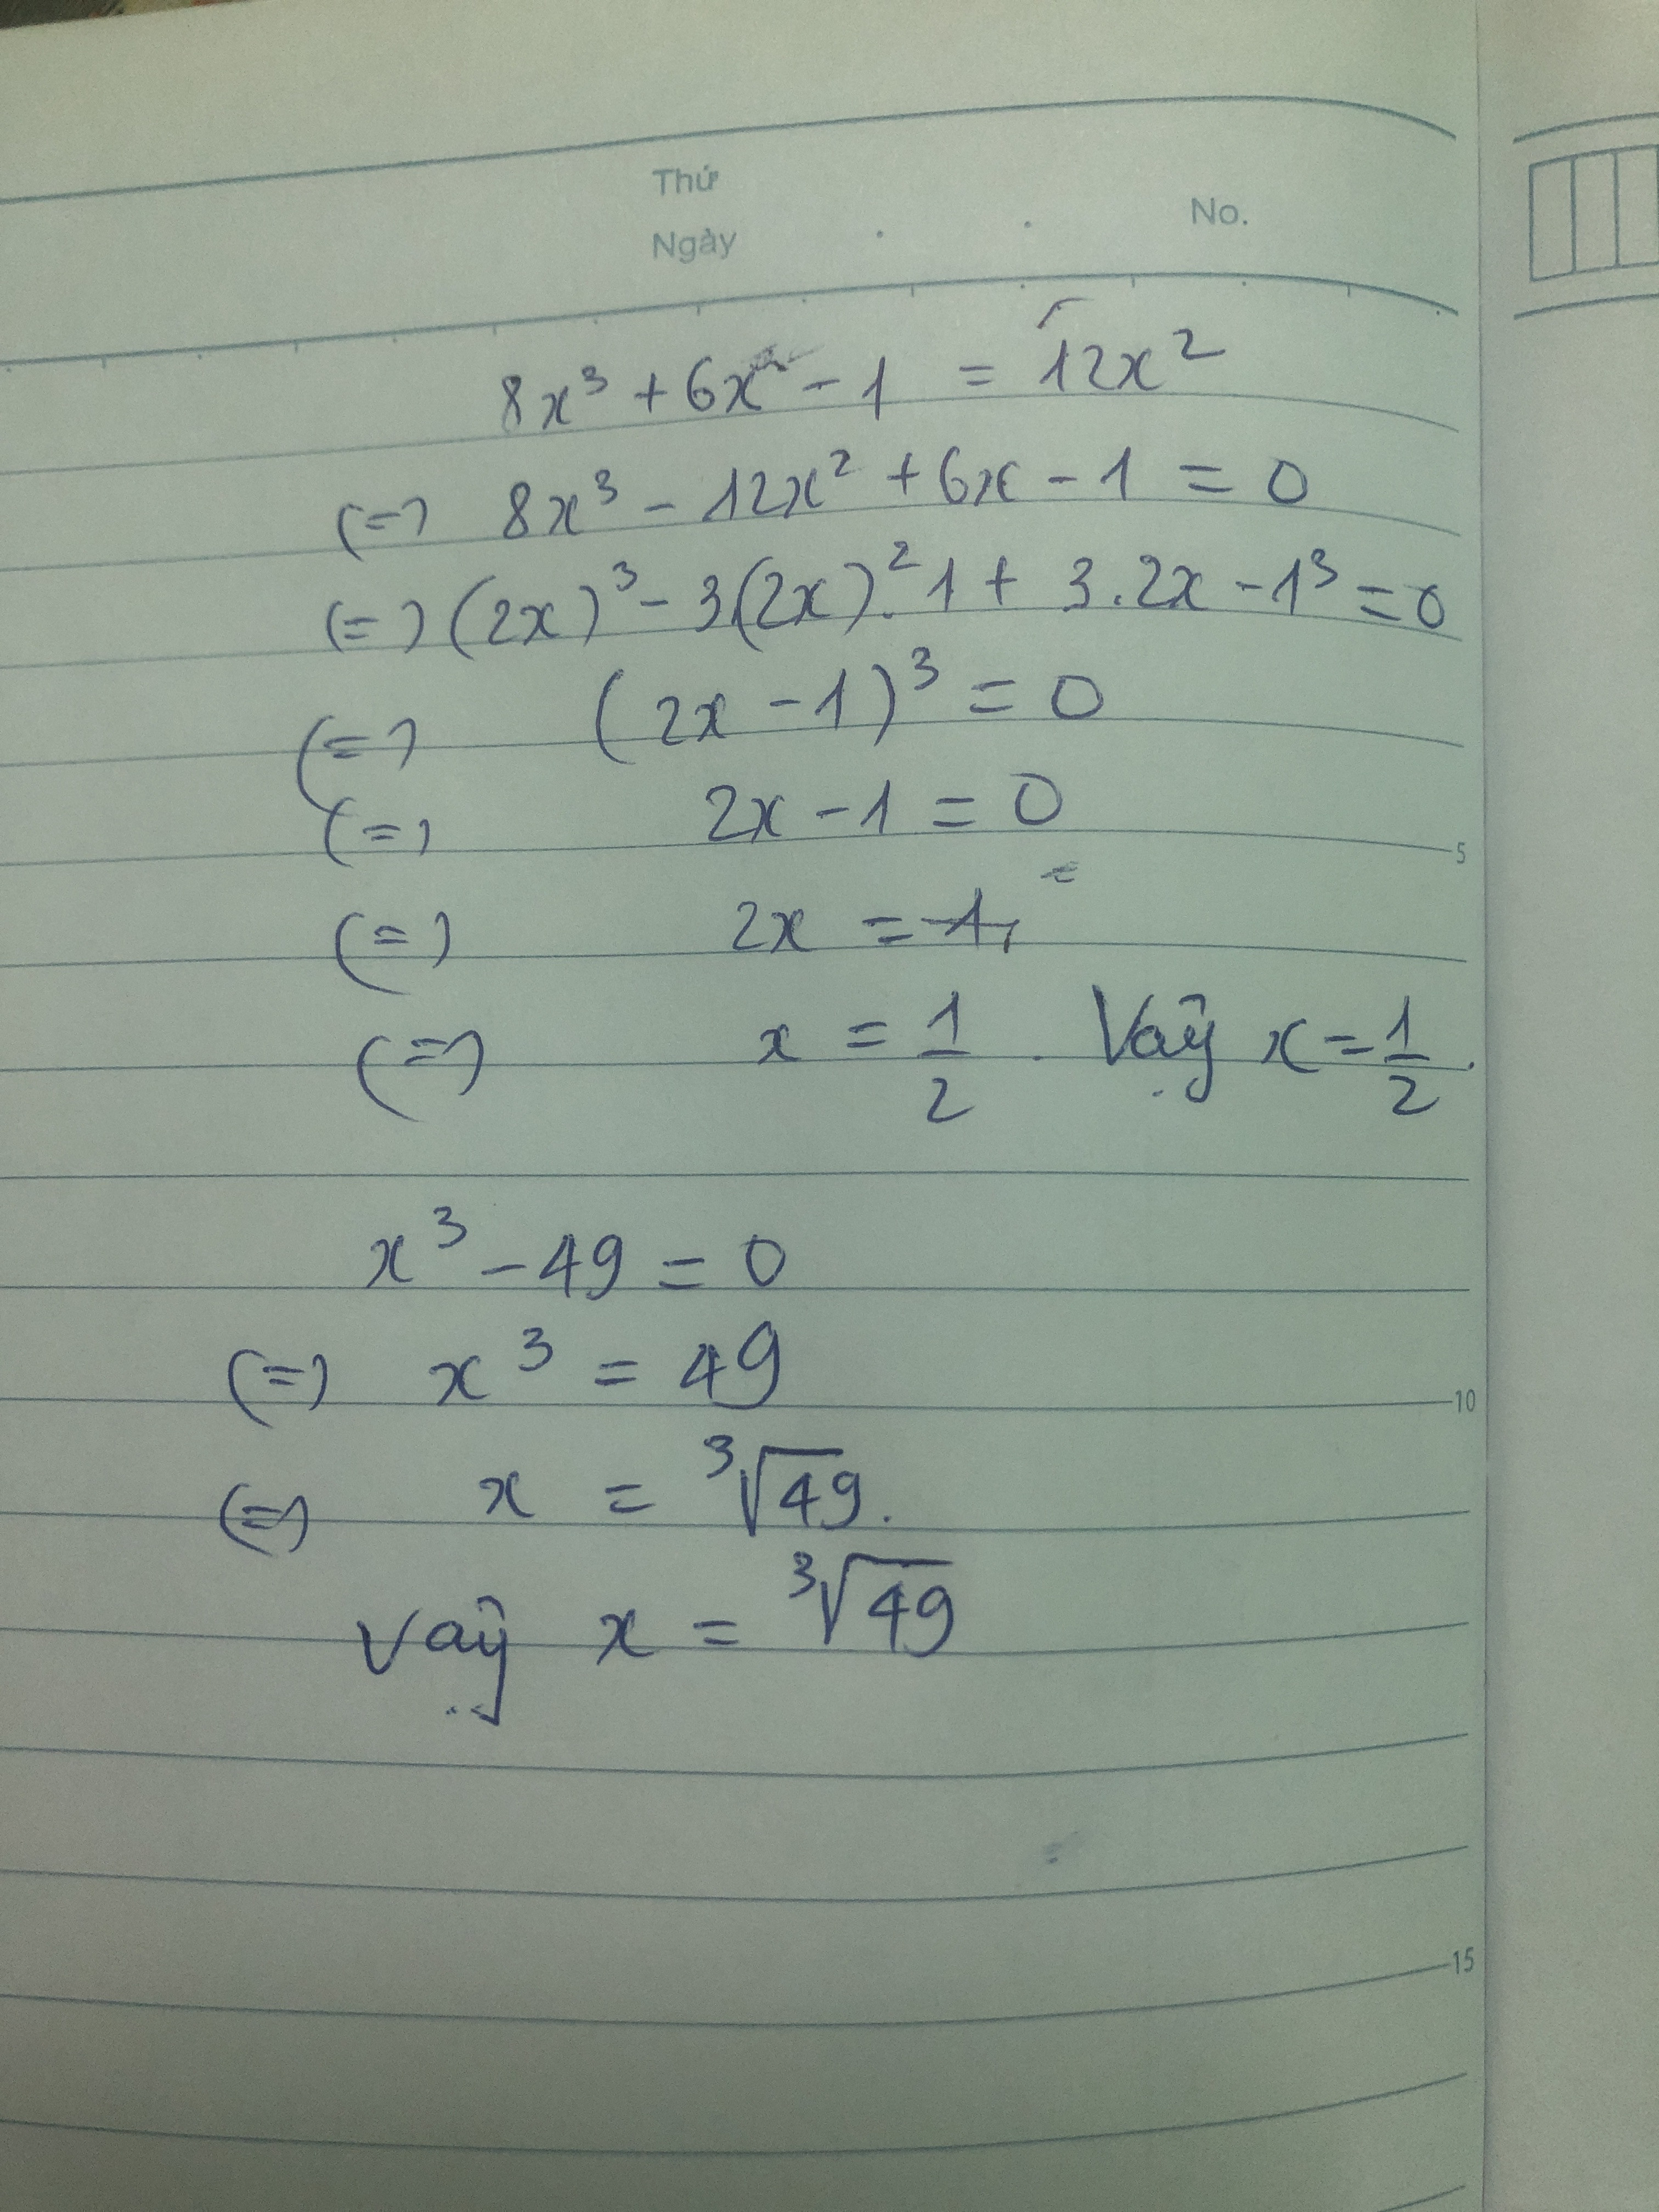 Thứ
Ngày
No.
8x³ + 6x - 1 = 12x²
(=) 8x³ - 12x² + 6x - 1 = 0
(=) (2x)³ - 3.(2x)².1 + 3.2x - 1³ = 0
(=) (2x - 1)³ = 0
(=) 2x - 1 = 0
5
(=) 2x = 1
(=) x = 1/2 . Vậy x = 1/2.
x³ - 49 = 0
(=) x³ = 49
10
(=) x = ³√49.
Vậy x = ³√49
15